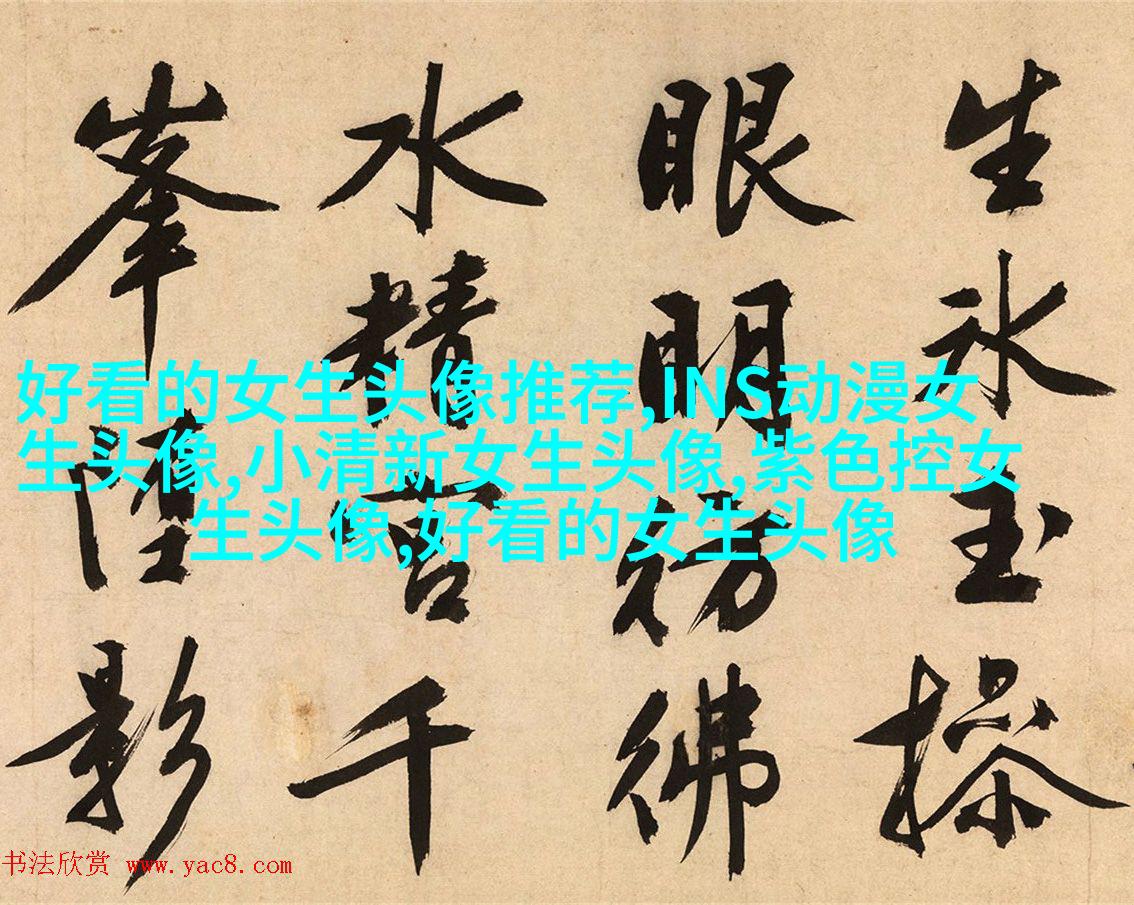 生冰玉操
眼明彷彿
水精宮千
峯影
好看的女生头像推荐,INS动漫女
生头像,小清新女生头像,紫色控女
生头像,好看的女生头像
书法欣赏 www.yac8.com